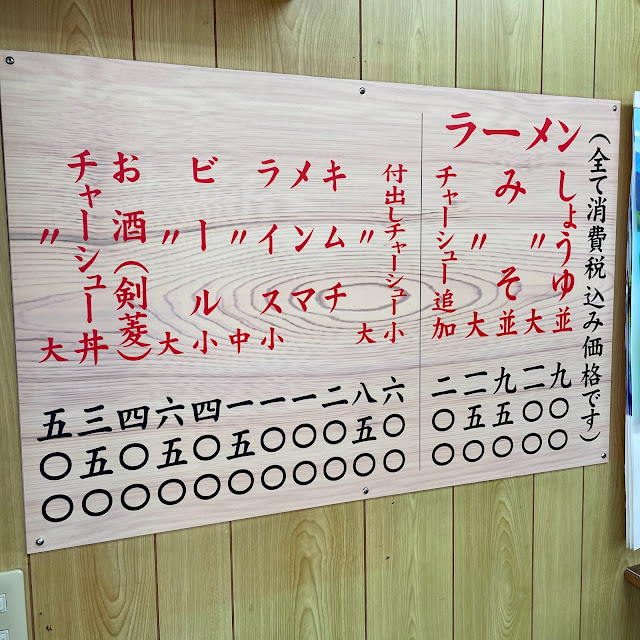 （全て消費税込み価格です）
ラーメン
しょうゆ並 九〇〇
〃大 一一〇〇
みそ並 九五〇
〃大 一一五〇
チャーシュー追加 二〇〇
付出しチャーシュー小 六〇〇
〃大 八五〇
キムチ 二〇〇
メンマ 一〇〇
ライス小 一〇〇
〃中 一五〇
ビール小 四〇〇
〃大 六五〇
お酒（剣菱） 四〇〇
チャーシュー丼 三五〇
〃大 五〇〇